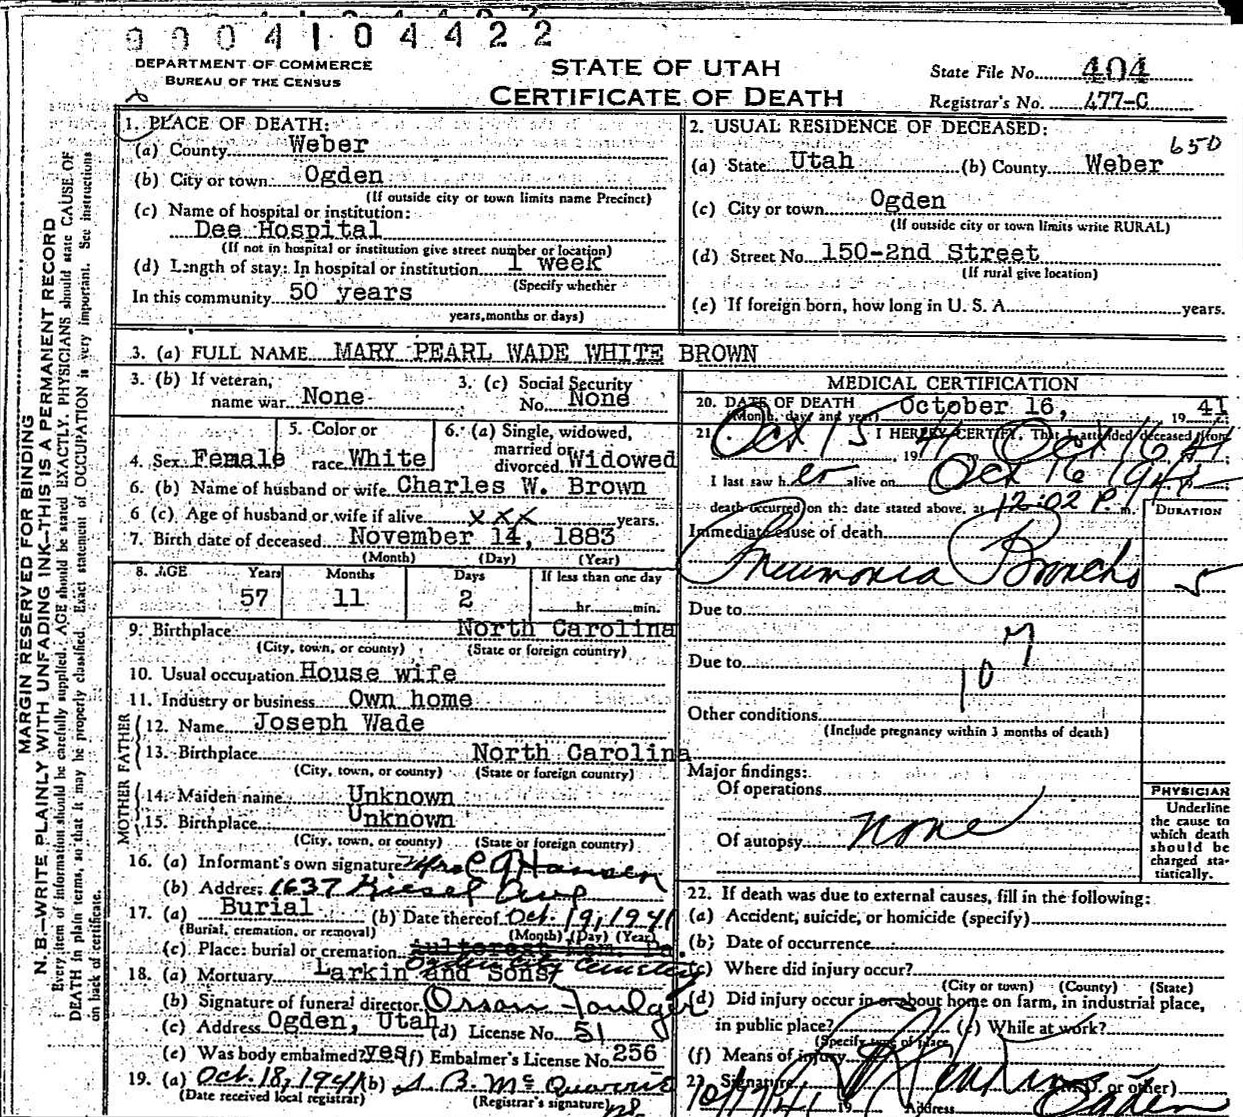 9004104422
DEPARTMENT OF COMMERCE
BUREAU OF THE CENSUS
STATE OF UTAH
CERTIFICATE OF DEATH
State File No. 404
Registrar's No. 477-C
MARGIN RESERVED FOR BINDING
N. B.—WRITE PLAINLY WITH UNFADING INK—THIS IS A PERMANENT RECORD
Every item of information should be carefully supplied. AGE should be stated EXACTLY. PHYSICIANS should state CAUSE OF
DEATH in plain terms, so that it may be properly classified. Exact statement of OCCUPATION is very important. See instructions
on back of certificate.
1. PLACE OF DEATH:
(a) County Weber
(b) City or town Ogden
(If outside city or town limits name Precinct)
(c) Name of hospital or institution:
Dee Hospital
(If not in hospital or institution give street number or location)
(d) Length of stay: In hospital or institution 1 week
(Specify whether
In this community 50 years
years, months or days)
2. USUAL RESIDENCE OF DECEASED:
650
(a) State Utah (b) County Weber
(c) City or town Ogden
(If outside city or town limits write RURAL)
(d) Street No. 150-2nd Street
(If rural give location)
(e) If foreign born, how long in U. S. A. years.
3. (a) FULL NAME MARY PEARL WADE WHITE BROWN
3. (b) If veteran, name war None
3. (c) Social Security No. None
4. Sex Female
5. Color or race White
6. (a) Single, widowed, married or divorced Widowed
6. (b) Name of husband or wife Charles W. Brown
6 (c) Age of husband or wife if alive xxx years.
7. Birth date of deceased November 14, 1883
(Month) (Day) (Year)
8. AGE Years Months Days If less than one day
57 11 2 hr. min.
9. Birthplace North Carolina
(City, town, or county) (State or foreign country)
10. Usual occupation House wife
11. Industry or business Own home
FATHER
12. Name Joseph Wade
13. Birthplace North Carolina
(City, town, or county) (State or foreign country)
MOTHER
14. Maiden name Unknown
15. Birthplace Unknown
(City, town, or county) (State or foreign country)
16. (a) Informant's own signature Mrs C G Hansen
(b) Address 1637 Kiesel Ave
17. (a) Burial (b) Date thereof Oct. 19, 1941
(Burial, cremation, or removal) (Month) (Day) (Year)
(c) Place: burial or cremation
Ogden City Cemetery
18. (a) Mortuary Larkin and Sons
(b) Signature of funeral director Orson Foulger
(c) Address Ogden, Utah (d) License No. 51
(e) Was body embalmed? yes (f) Embalmer's License No. 256
19. (a) Oct. 18, 1941 (b)
(Date received local registrar) (Registrar's signature)
MEDICAL CERTIFICATION
20. DATE OF DEATH October 16, 1941
(Month, day and year)
21. I HEREBY CERTIFY, That I attended deceased from
Oct 15 1941 to Oct 16 41
I last saw her alive on Oct 16 1941
death occurred on the date stated above, at 12:02 P. m.
DURATION
Immediate cause of death
Pneumonia Broncho 5
Due to
Due to
107
Other conditions
(Include pregnancy within 3 months of death)
Major findings:
Of operations
Of autopsy none
PHYSICIAN
Underline
the cause to
which death
should be
charged sta-
tistically.
22. If death was due to external causes, fill in the following:
(a) Accident, suicide, or homicide (specify)
(b) Date of occurrence
(c) Where did injury occur?
(City or town) (County) (State)
(d) Did injury occur in or about home on farm, in industrial place,
in public place? (e) While at work?
(Specify type of place)
(f) Means of injury
23. Signature (M.D. or other)
10/17/41 19 Address Ogden